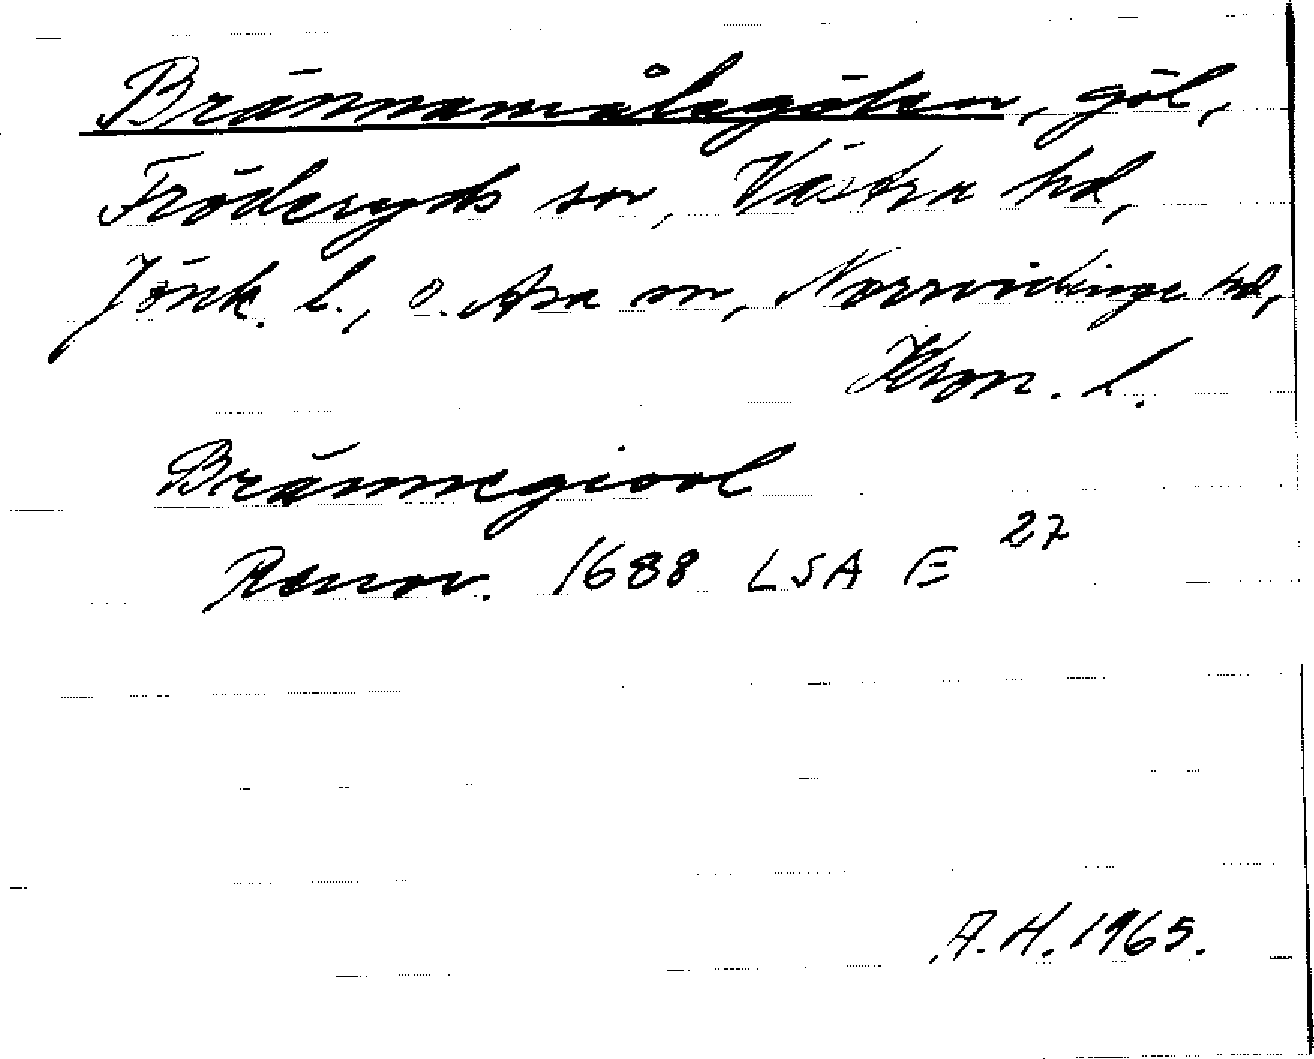 Brännamålagölen, göl,
Fröderyds sn, Västra hd,
Jönk. l., o. Asa sn, Norrvidinge hd,
Kron. l.
Brännegiool
Renov. 1688 LSA E 27
A.H. 1965.